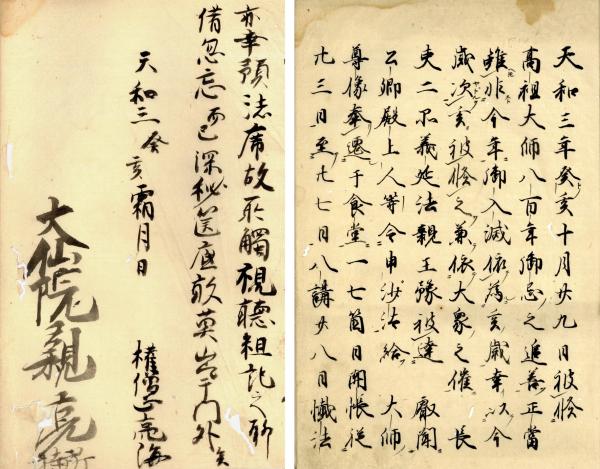 天和三年癸亥十月廿九日被修
高祖大師八百年御忌之追善正當
雖非今年御入滅依為亥歳幸以今
歳次亥被修之兼依大衆之催長
吏二品義延法親王豫被達 叡聞
公卿殿上人等令申沙汰給 大師
尊像奉遷于食堂一七箇日開帳従
廿三日至廿七日八講廿八日懺法
亦幸預誌席故所觸視聴粗記之聊
備忽忘而已深秘筐底敢莫出于門外矣
天和三癸亥霜月日
權僧正亮海
大仙院親亮